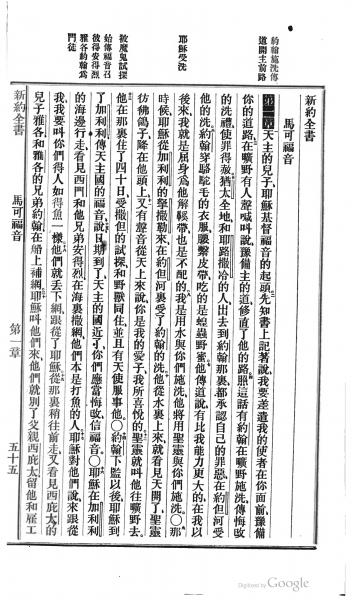 新約全書
馬可福音
約翰施洗傳
道開主前路
第一章天主的兒子、耶穌基督福音的起頭、先知書上記著說、我要差遣我的使者在你面前、豫備
你的道路、在曠野有人聲喊叫說、豫備主的道、修直了他的路、照這話有約翰在曠野施洗、傳悔改
的洗禮、使罪得赦、猶太全地、和耶路撒冷的人、出去到約翰那裏、都承認自己的罪惡、在約但河受
他的洗、約翰穿駱駝毛的衣服、腰繫皮帶、吃的是蝗蟲野蜜、他傳道說、有比我能力更大的、在我以
後來、我就是屈身爲他解鞋帶、也是不配的、我是用水與你們施洗、他將用聖靈與你們施洗○那
耶穌受洗
時候耶穌從加利利的拏撒勒來、在約但河裏受了約翰的洗、他從水裏上來、就看見天開了、聖靈
彷彿鴿子、降在他頭上、又有聲音從天上來說、你是我的愛子、我所喜悅的、聖靈就叫他往曠野去、
被魔鬼試探
他在那裏住了四十日、受撒但的試探、和野獸同在、並且有天使服事他○約翰下監以後、耶穌到
始傳福音召
彼得安得烈
雅各約翰爲
門徒
了加利利、傳天主國的福音、說日期到了、天主的國近了、你們應當悔改信福音○耶穌在加利利
的海邊行走、看見西門、和他兄弟安得烈、在海裏撒網、他們本是打魚的人、耶穌對他們說、來跟從
我、我要叫你們得人如得魚一樣、他們就丟下網、跟從了耶穌、從那裏稍往前走、又看見西庇太的
兒子雅各、和雅各的兄弟約翰、在船上補網、耶穌叫他們來、他們就別了父親西庇太、留他和雇工
新約全書
馬可福音
第一章
五十五
Digitized by Google